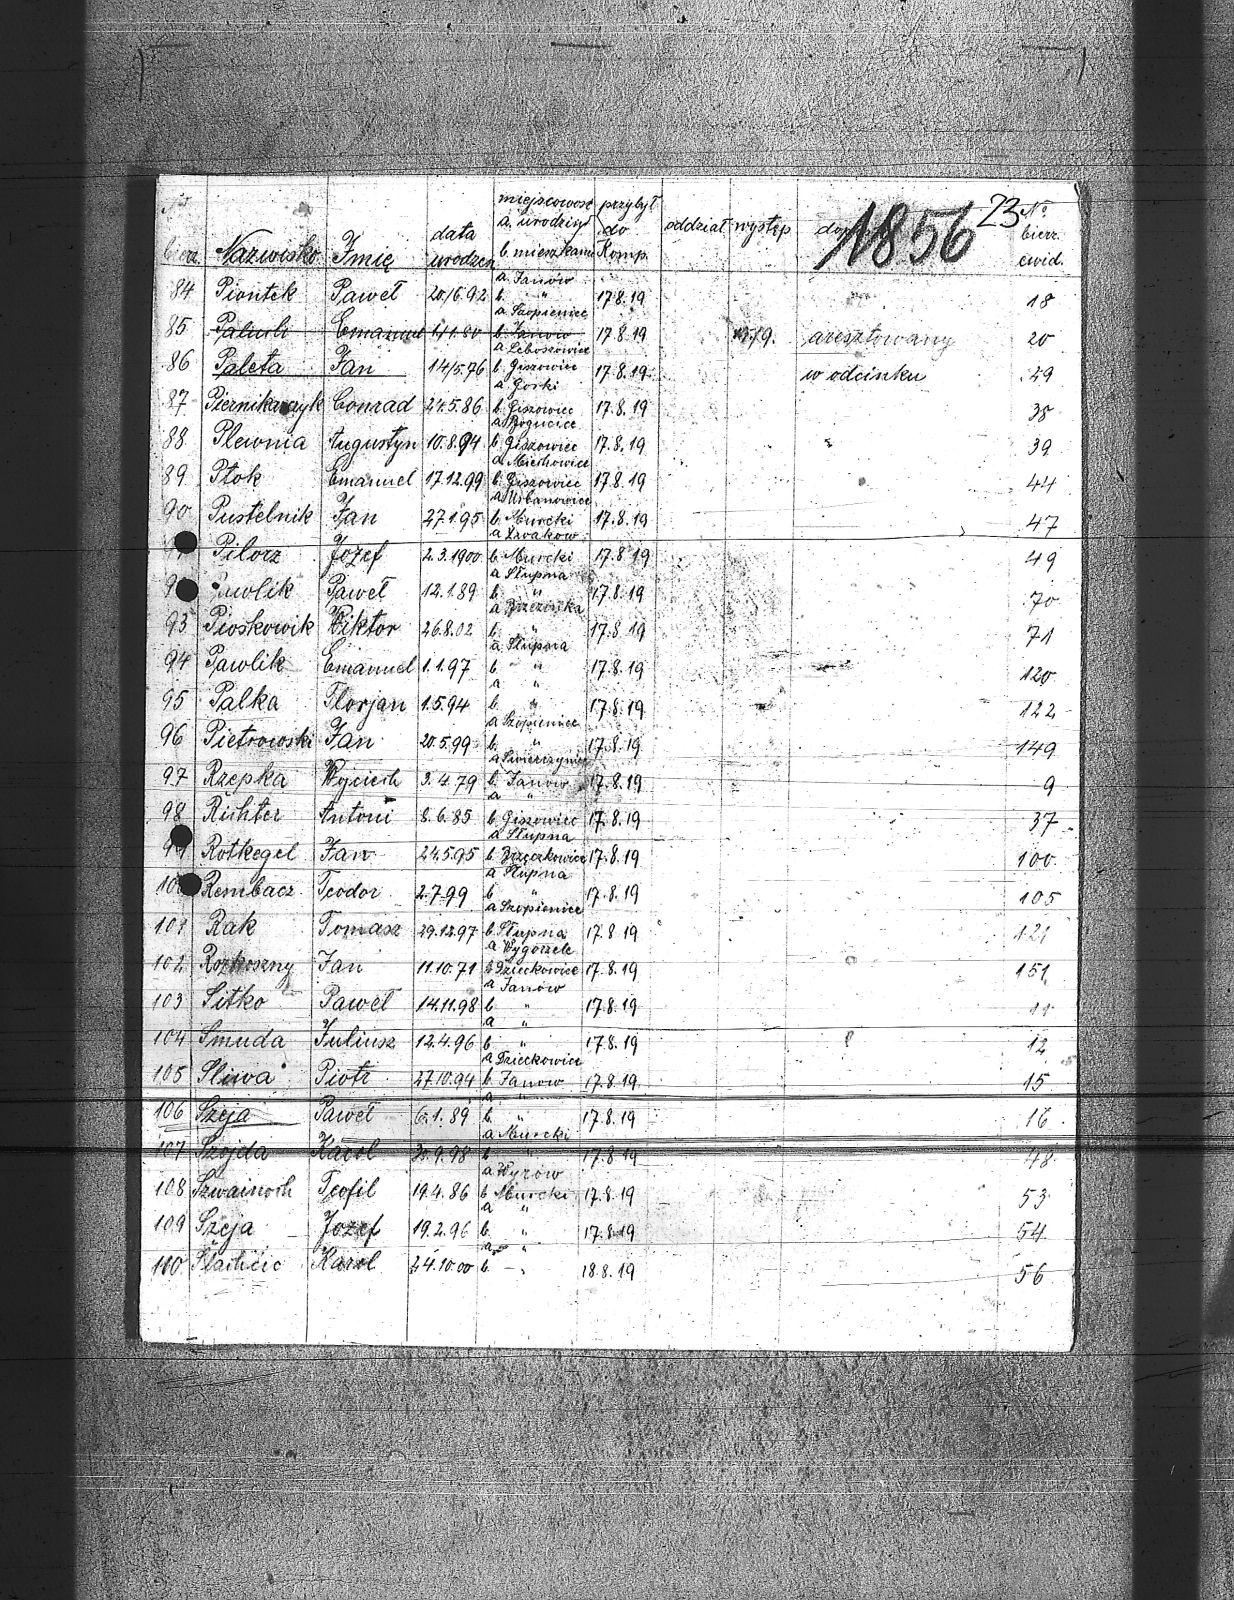 1856 23
No bierz. Nazwisko Imię data urodzen miejscowość a. urodzin b. mieszkania przybył do Komp. oddział występ No bierz. ewid.
84 Piontek Paweł 20/6.92 a. Janów b. " 17.8.19 18
85 Paluch Emanuel 1/1.80 a Szopienice b. Janów 17.8.19 aresztowany 20
86 Paleta Jan 14/5.76 b. Giszowiec 17.8.19 w odcinku 29
87 Piernikarczyk Conrad 24.5.86 a Gorki b. Giszowiec 17.8.19 35
88 Plewnia Augustyn 10.8.94 a Bogucice b Giszowiec 17.8.19 39
89 Ptok Emanuel 17.12.99 a. Miechowice b. Giszowiec 17.8.19 44
90 Pustelnik Jan 27.1.95 a Urbanowice b. Murcki 17.8.19 47
Pilorz Józef 2.3.1900 b. Murcki 17.8.19 49
Pawlik Paweł 12.1.89 a Słupna b. " 17.8.19 70
93 Pioskowik Wiktor 26.8.02 a Brzezinka b. " 17.8.19 71
94 Pawlik Emanuel 1.1.97 a Słupna b " 17.8.19 120
95 Palka Florjan 1.5.94 a " b. " 17.8.19 122
96 Pietrowski Jan 20.5.99 a Szopienice b. " 17.8.19 149
97 Rzepka Wojciech 3.4.79 b. Janów 17.8.19 9
98 Richter Antoni 8.6.85 a " b Giszowiec 17.8.19 37
99 Rotkegel Jan 24.5.95 a Słupna b. Brzęczkowice 17.8.19 100
100 Rembacz Teodor 2.7.99 a Słupna b " 17.8.19 105
101 Rak Tomasz 29.12.97 a Szopienice b Słupna 17.8.19 121
102 Rozkoszny Jan 11.10.71 b Dzieckowice 17.8.19 151
103 Sitko Paweł 14.11.98 a Janów b " 17.8.19 11
104 Smuda Juliusz 12.4.96 a " b. " 17.8.19 12
105 Sliwa Piotr 27.10.94 a Dzieckowice b. Janów 17.8.19 15
106 Szeja Paweł 6.1.89 a " b. " 17.8.19 16
107 Szojda Karol a Murcki b " 17.8.19 48
108 Szwainoch Teofil 19.4.86 a Wyrów b Murcki 17.8.19 53
109 Szeja Józef 19.2.96 a " b. " 17.8.19 54
110 Karol 24.10.00 a " b. 18.8.19 56